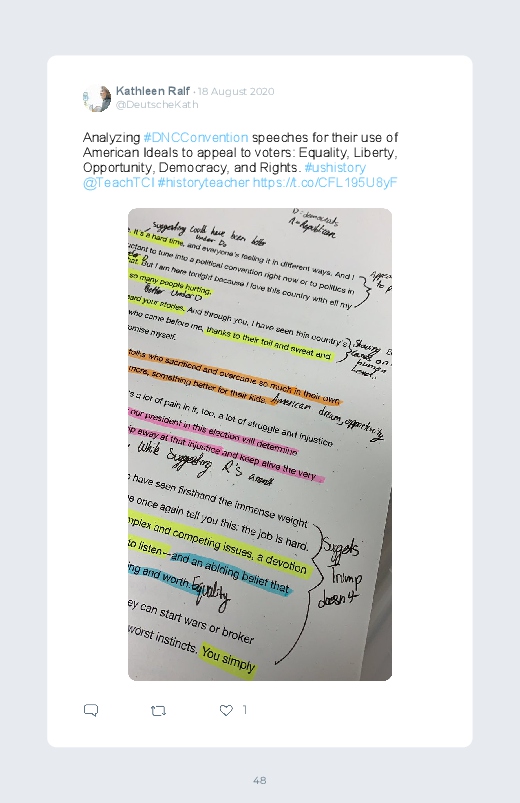 Kathleen Ralf · 18 August 2020
@DeutscheKath
Analyzing #DNCConvention speeches for their use of
American Ideals to appeal to voters: Equality, Liberty,
Opportunity, Democracy, and Rights. #ushistory
@TeachTCI #historyteacher https://t.co/CFL195U8yF
D = democrats
R = Republican
Suggesting could have been better
under Ds
It's a hard time, and everyone's feeling it in different ways. And I
to tune into a political convention right now or to politics in
But I am here tonight because I love this country with all my
so many people hurting.
Better under D
your stories. And through you, I have seen this country's
who came before me, thanks to their toil and sweat and
myself.
folks who sacrificed and overcame so much in their own
more, something better for their kids. American dream, opportunity
a lot of pain in it, too, a lot of struggle and injustice
our president in this election will determine
away at that injustice and keep alive the very
While Suggesting R's
have seen firsthand the immense weight
once again tell you this: the job is hard.
and competing issues, a devotion
to listen—and an abiding belief that
and worth Equality
Suggests
Trump
doesn't
can start wars or broker
worst instincts. You simply
1
48